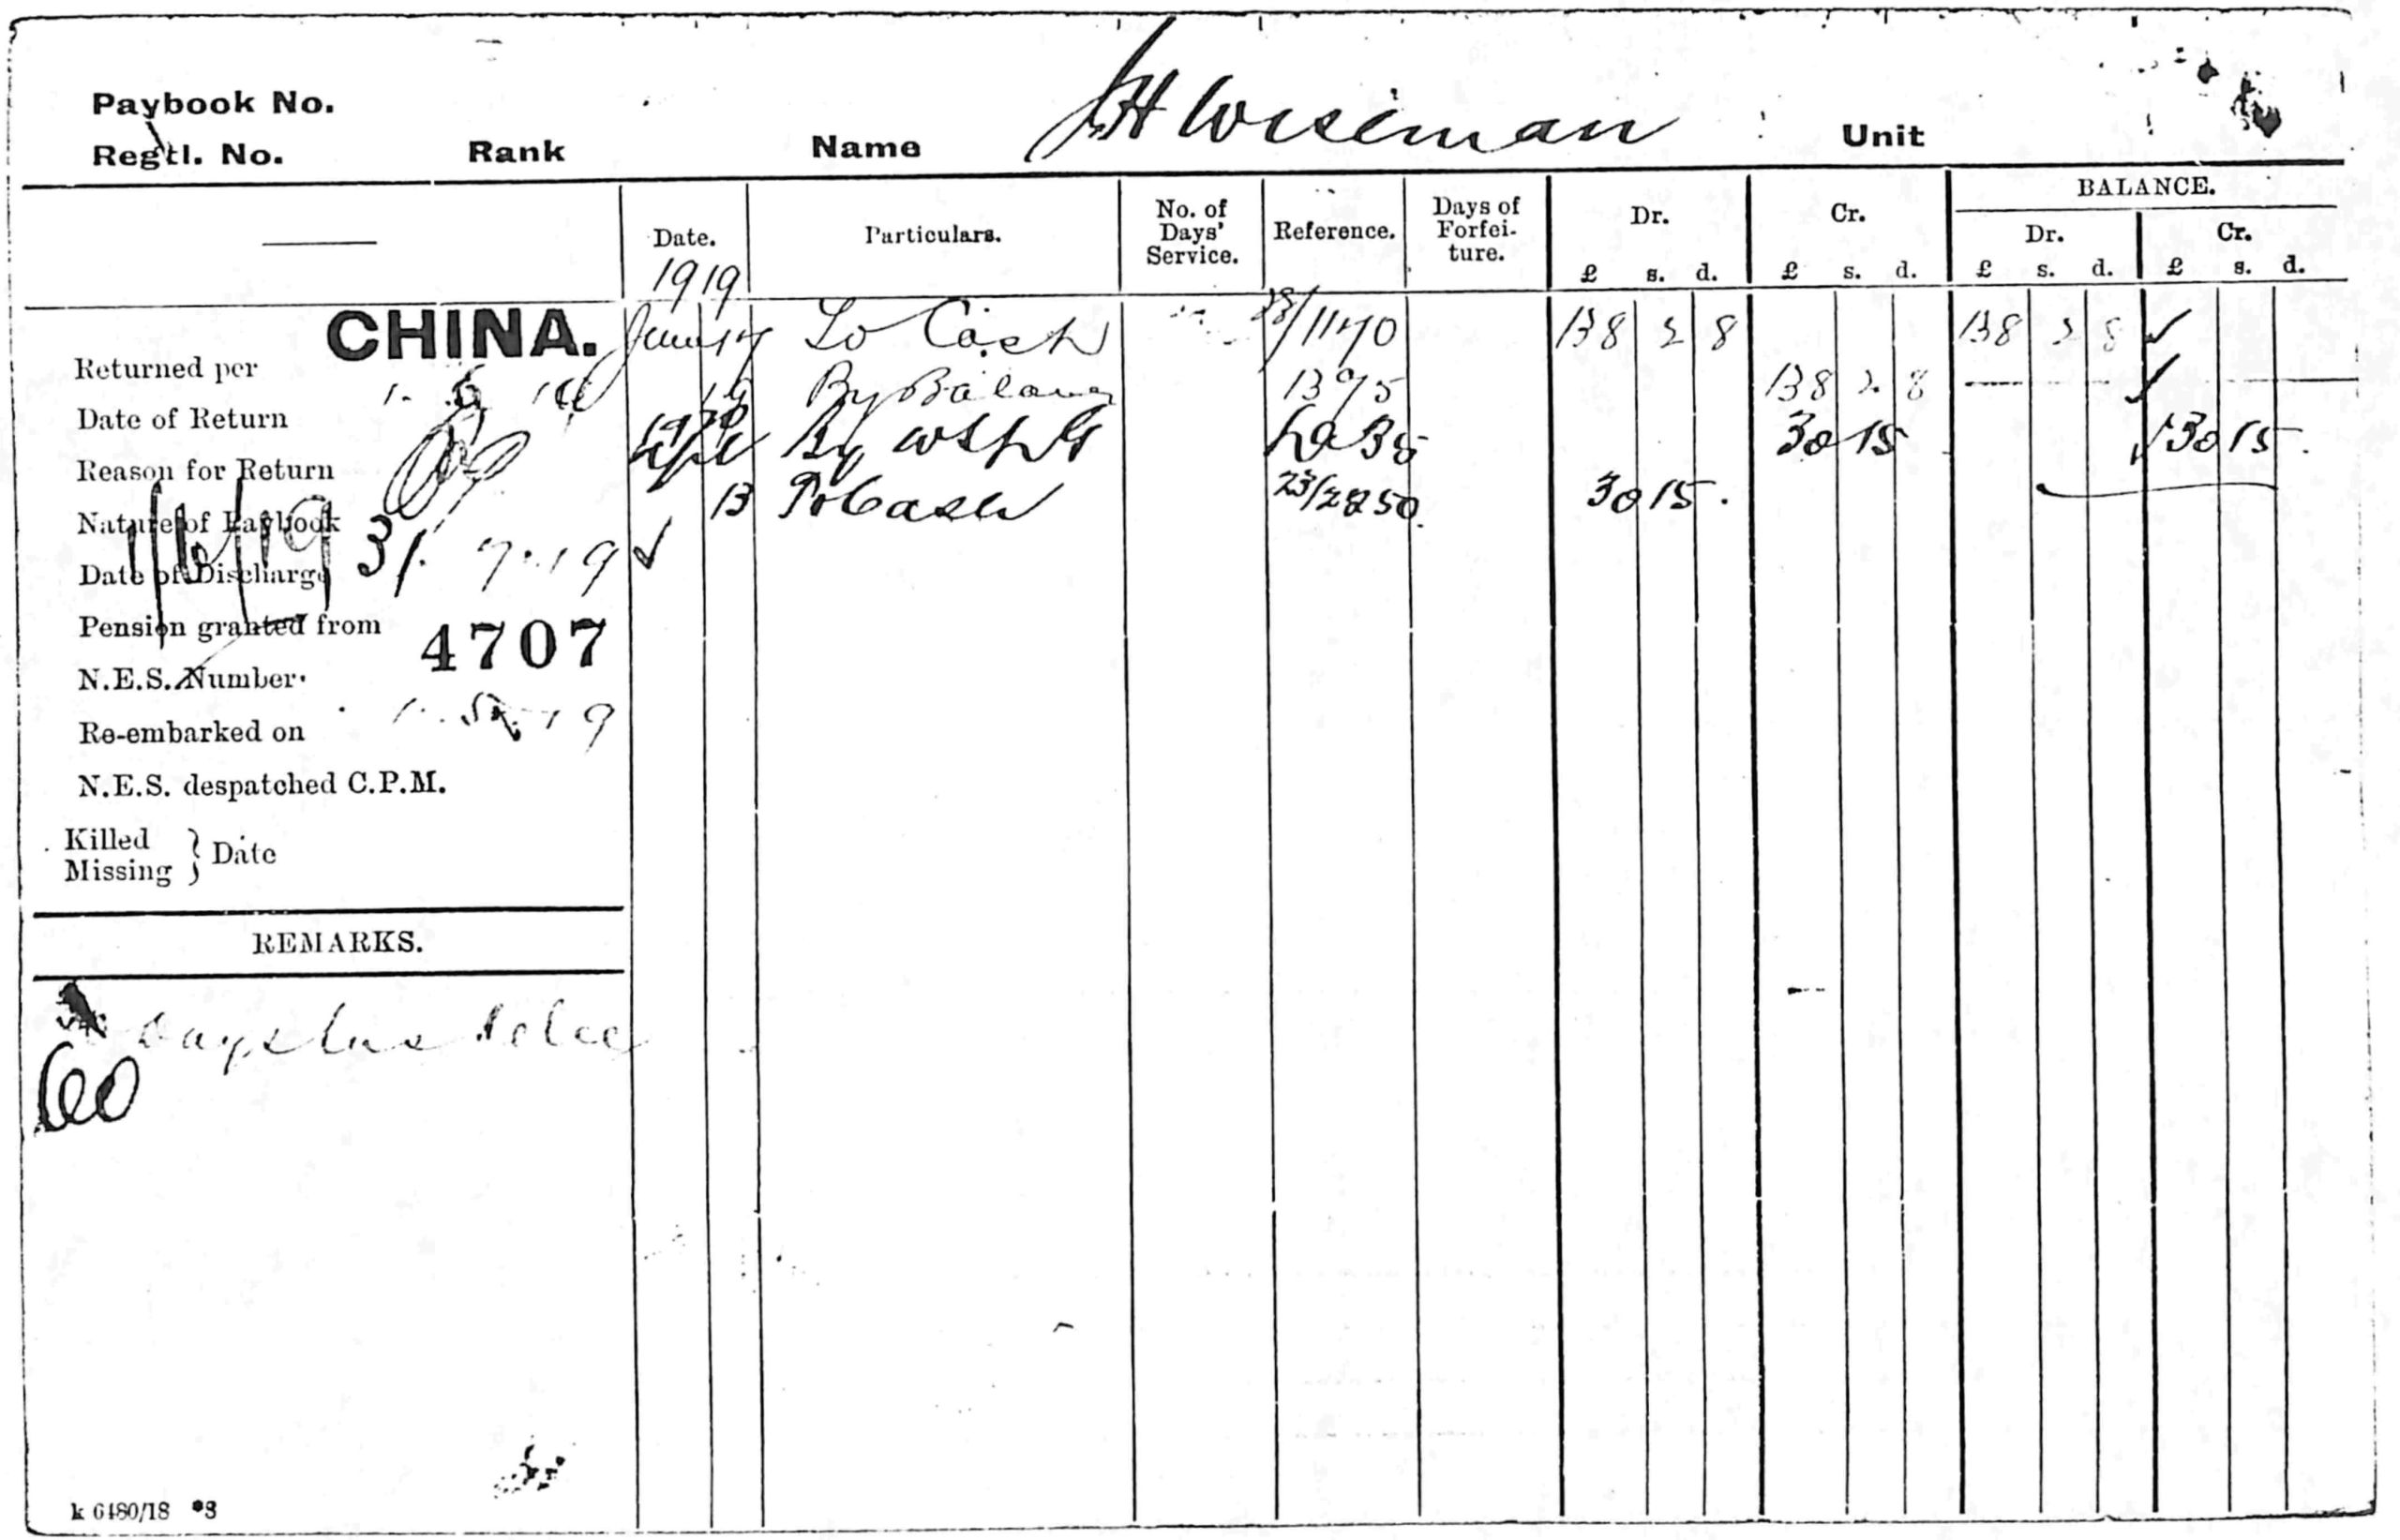 Paybook No.
Regtl. No. Rank Name H Wiseman Unit
Date. Particulars. No. of Days' Service. Reference. Days of Forfei-ture. Dr. Cr. BALANCE.
Dr. Cr.
£ s. d. £ s. d. £ s. d. £ s. d.
1919
CHINA.
June 17 To Cash 28/1170 138 2 8 138 2 8
Returned per
19 By Balance 1395 138 2 8
Date of Return
1920
By 30 15 30 15
Reason for Return
13 To Cash 23/2850 30 15
Nature of Paybook
1/6/19 31. 7. 19
Date of Discharge
Pension granted from
4707
N.E.S. Number
Re-embarked on 1. 5. 19
N.E.S. despatched C.P.M.
Killed
Missing } Date
REMARKS.
days
k 6480/18 *3